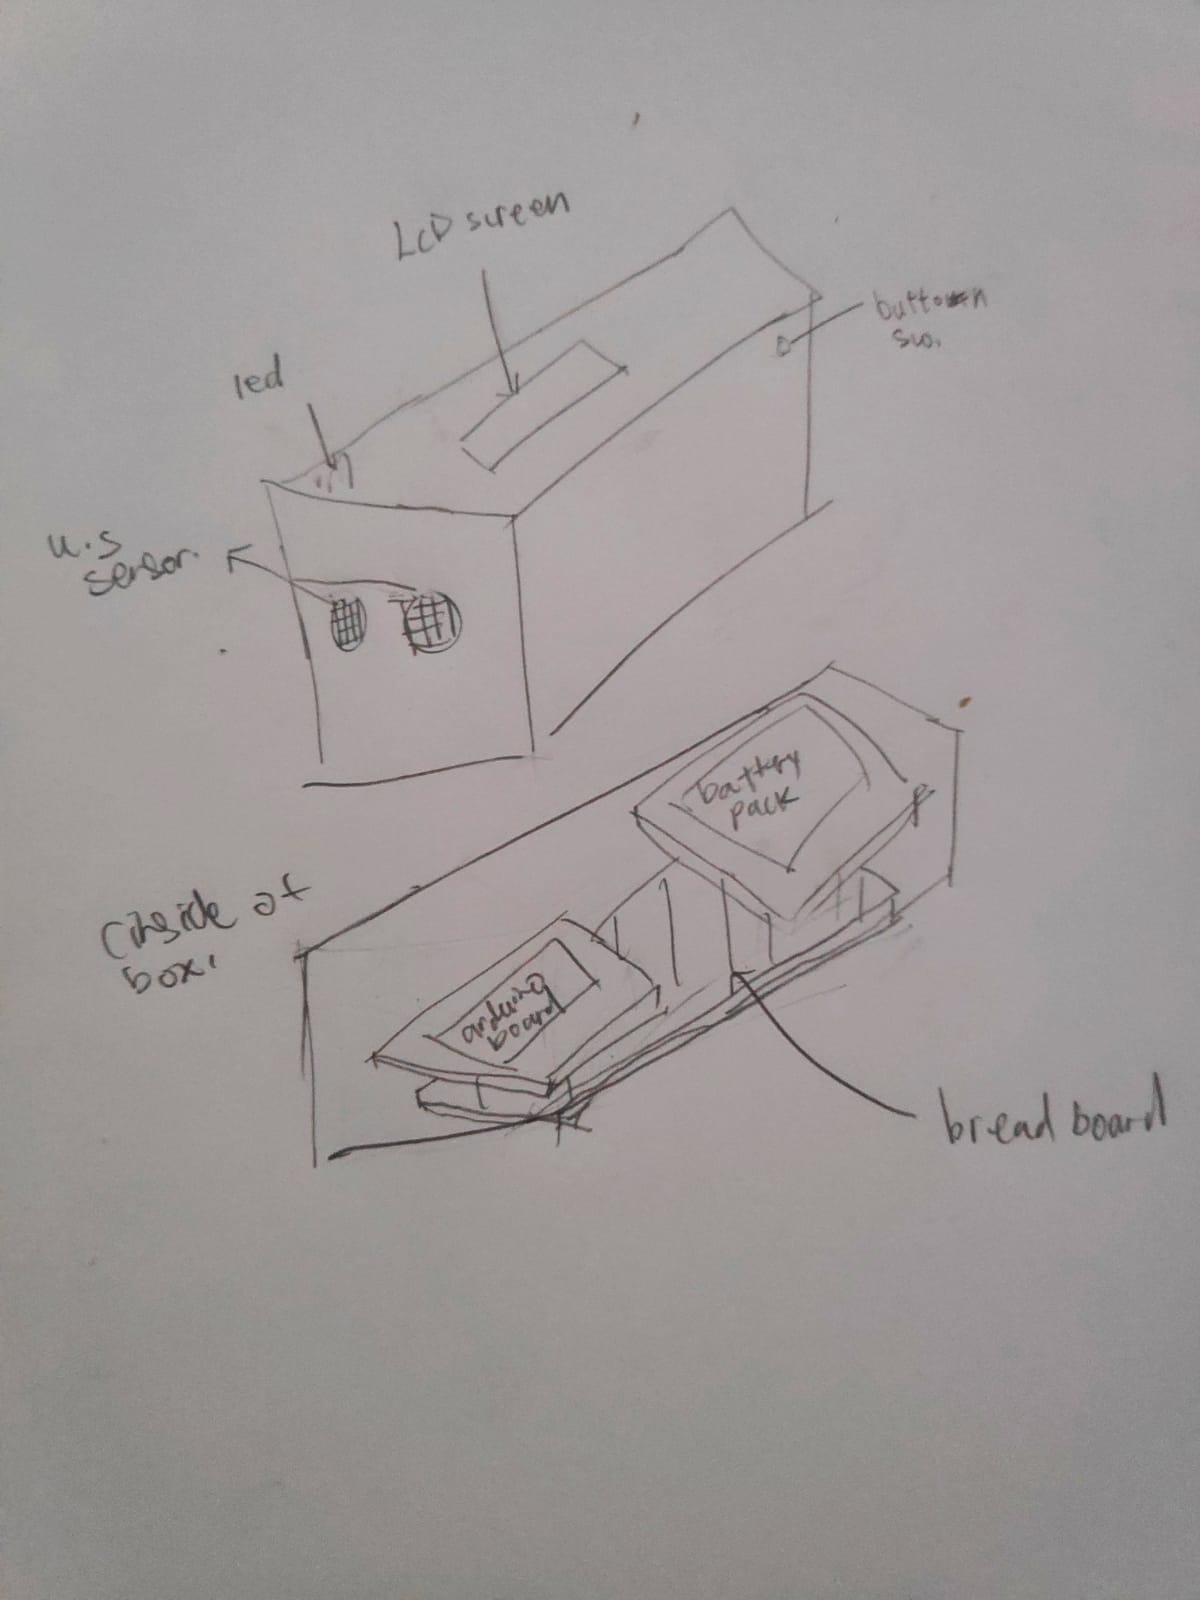 LCD screen
button
sw.
led
u.s
sensor.
battery
pack
(inside of
box.
arduino
board
bread board